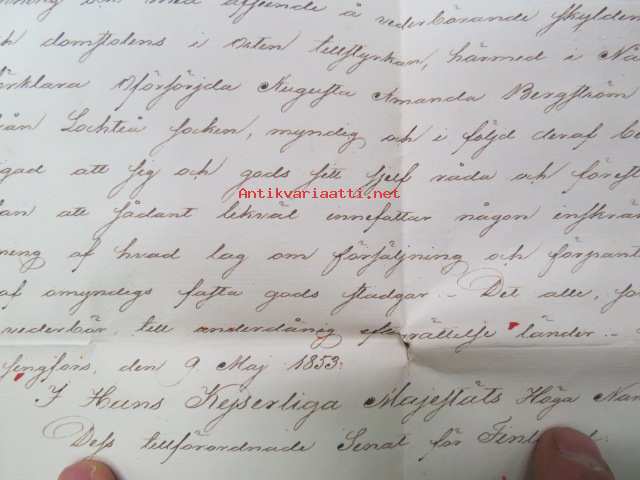 ning och med afseende å vederbörande skylden
domstolens i orten tillstyrkan, härmed i Nå
förklara Oförsörjda Augusta Amanda Bergström
från Lochteå socken, myndig och i följd deraf be
igad att sig och gods sitt sjelf råda och förest
Antikvariaatti.net
an att sådant likväl innefattar någon inskrä
ning af hvad lag om försäljning och förpant
af omyndigs fasta gods stadgar. Det alle, so
vederbör, till underdånig efterrättelse länder.
singfors, den 9 Maj 1853.
I Hans Kejserliga Majestäts Höga Nam
Dess tillförordnade Senat för Finland.